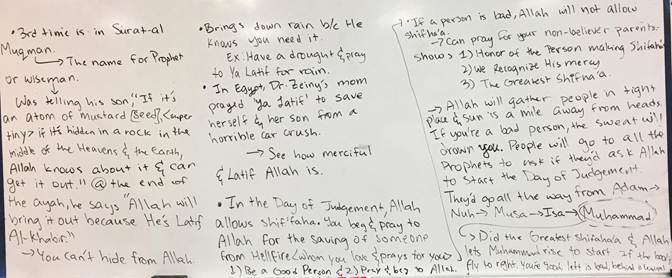 • 3rd time is in Surat-al
Muqman.
→ The name for Prophet
or wiseman.
↓
Was telling his son, "If it's
an atom of mustard (seed), (super
tiny) if it's hidden in a rock in the
middle of the Heavens & the Earth,
Allah knows about it & can
get it out." @ the end of
the ayah, he says "Allah will
bring it out because He's Latif
Al-Khabir."
→ You can't hide from Allah
• Brings down rain b/c He
knows you need it.
Ex: Have a drought & pray
to Ya Latif for rain.
• In Egypt, Dr. Zeiny's mom
prayed 'ya latif' to save
herself & her son from a
horrible car crush.
→ See how merciful
& Latif Allah is.
• In the Day of Judgement, Allah
allows shifa'ha. You beg & pray to
Allah for the saving of someone
from Hellfire (whom you love & prays for you)
1) Be a Good Person & 2) Pray & beg to Allah.
• If a person is bad, Allah will not allow
shifa'ha.
→ Can pray for your non-believer parents.
shows 1) Honor of the Person making Shifaha
2) We Recognize His mercy
3) The Greatest Shifha'a.
→ Allah will gather people in tight
place & sun is a mile away from heads.
If you're a bad person, the sweat will
drown you. People will go to all the
Prophets to ask if they'd ask Allah
to start the Day of Judgement.
They'd go all the way from Adam →
Nuh → Musa → Isa → Muhammad
→ Did the Greatest Shifaha'a & Allah
lets Muhammad rise to start